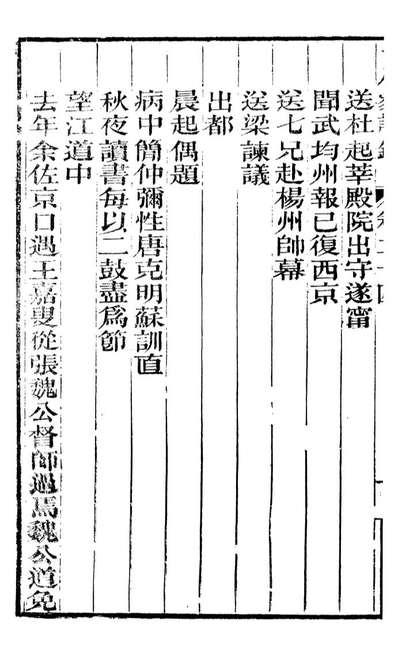 送杜起莘殿院出守遂甯
聞武均州報已復西京
送七兄赴楊州帥幕
送梁諫議
出都
晨起偶題
病中簡仲彌性唐克明蘇訓直
秋夜讀書每以二鼓盡爲節
望江道中
去年余佐京口遇王嘉叟從張魏公督師過焉魏公道免